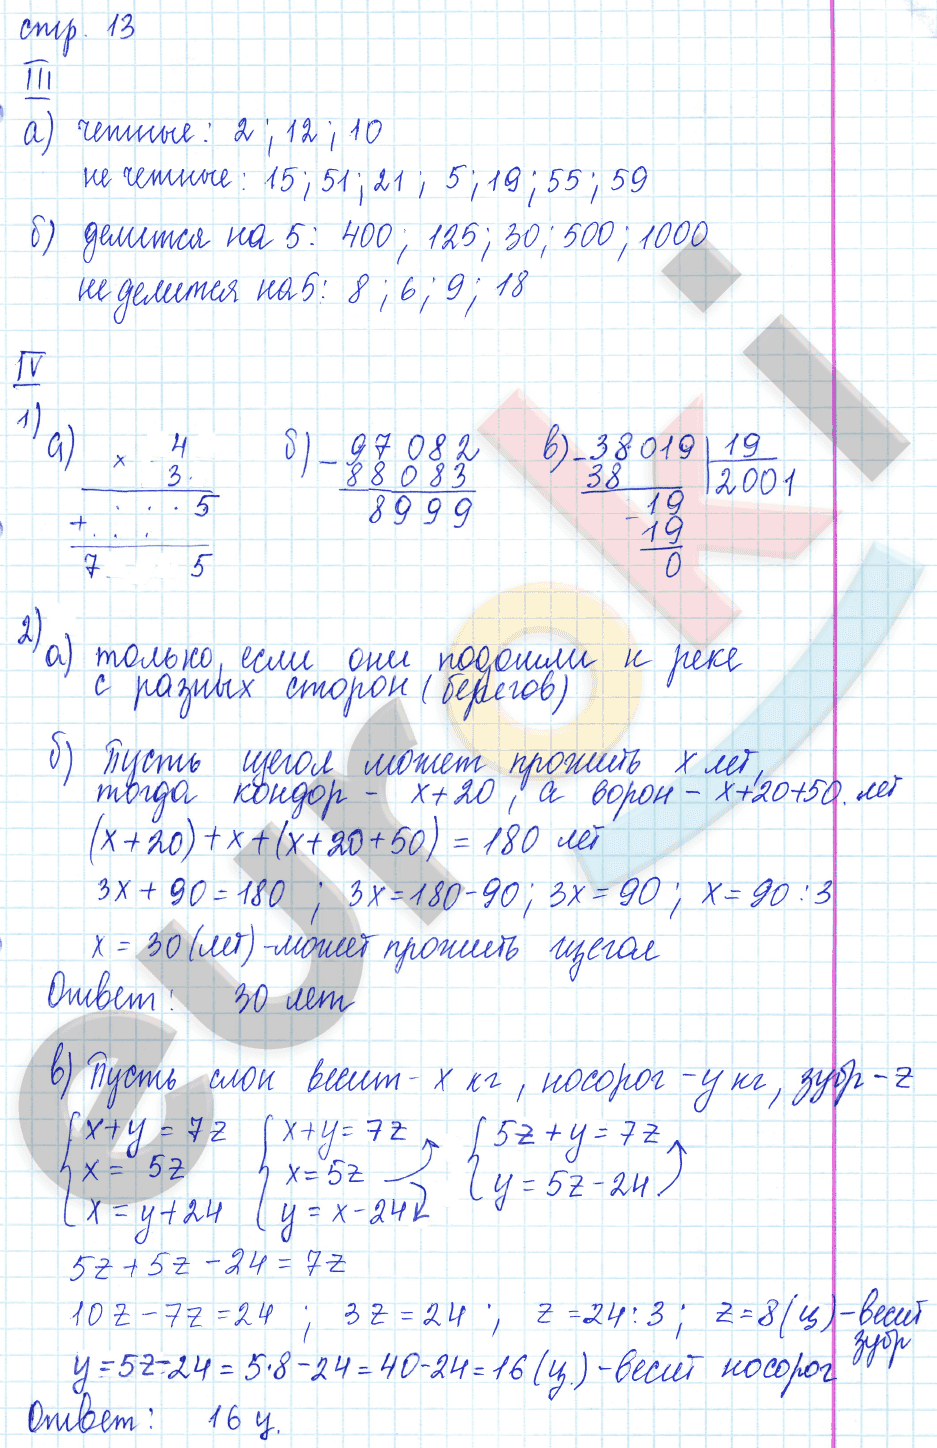 стр. 13
III
а) четные: 2; 12; 10
не четные: 15; 51; 21; 5; 19; 55; 59
б) делится на 5: 400; 125; 30; 500; 1000
не делится на 5: 8; 6; 9; 18
IV
1)
а) × 4
3.
. . . 5
+ . . .
7 5
б) - 97082
88083
8999
в) - 38019 | 19
38 | 2001
- 19
19
0
2)
а) только, если они подошли к реке
с разных сторон (берегов)
б) Пусть щегол может прожить x лет,
тогда кондор - x+20, а ворон - x+20+50 лет
(x+20)+x+(x+20+50) = 180 лет
3x+90=180 ; 3x=180-90; 3x=90; x=90:3
x = 30 (лет) - может прожить щегол
Ответ: 30 лет
в) Пусть слон весит - x кг, носорог - y кг, зубр - z
{ x+y=7z { x+y=7z { 5z+y=7z
x = 5z x=5z y=5z-24
x = y+24 y=x-24
5z+5z-24=7z
10z-7z=24 ; 3z=24 ; z=24:3; z=8(ц) - весит
зубр
y=5z-24=5·8-24=40-24=16(ц.) - весит носорог
Ответ: 16 ц.
euroki